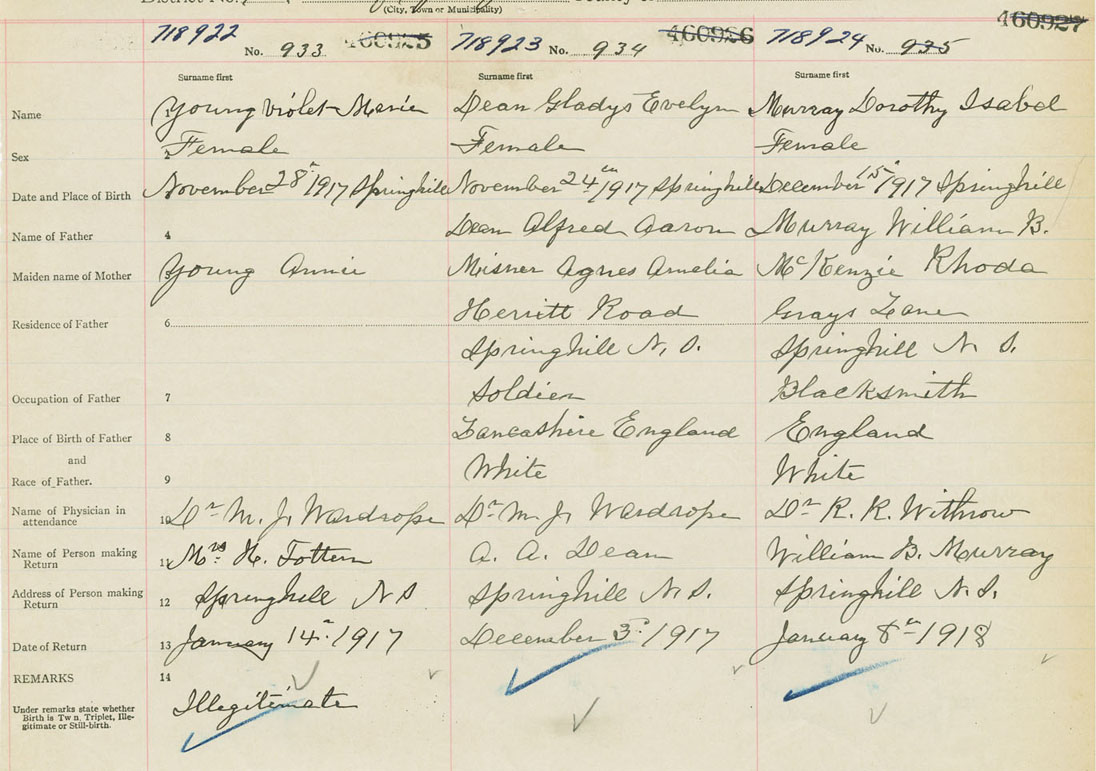 (City, Town or Municipality)
718922 No. 933 460925 718923 No. 934 460926 718924 No. 935 460927
Surname first Surname first Surname first
Name 1 Young Violet Marie Dean Gladys Evelyn Murray Dorothy Isabel
Sex 2 Female Female Female
Date and Place of Birth November 28th 1917 Springhill November 24th 1917 Springhill December 15th 1917 Springhill
Name of Father 4 Dean Alfred Aaron Murray William B.
Maiden name of Mother 5 Young Annie Misner Agnes Amelia McKenzie Rhoda
Herritt Road Grays Lane
Residence of Father 6
Springhill N. S. Springhill N S.
Occupation of Father 7 Soldier Blacksmith
Place of Birth of Father 8 Lancashire England England
and
Race of Father. 9 White White
Name of Physician in attendance 10 Dr M. J. Wardrope Dr M J. Wardrope Dr R. R. Withrow
Name of Person making Return 11 Mrs H. Totten A. A. Dean William B. Murray
Address of Person making Return 12 Springhill N S Springhill N. S. Springhill N. S.
Date of Return 13 January 14th 1917 December 3rd 1917 January 8th 1918
REMARKS 14
Illegitimate
Under remarks state whether
Birth is Tw n, Triplet, Ille-
gitimate or Still-birth.